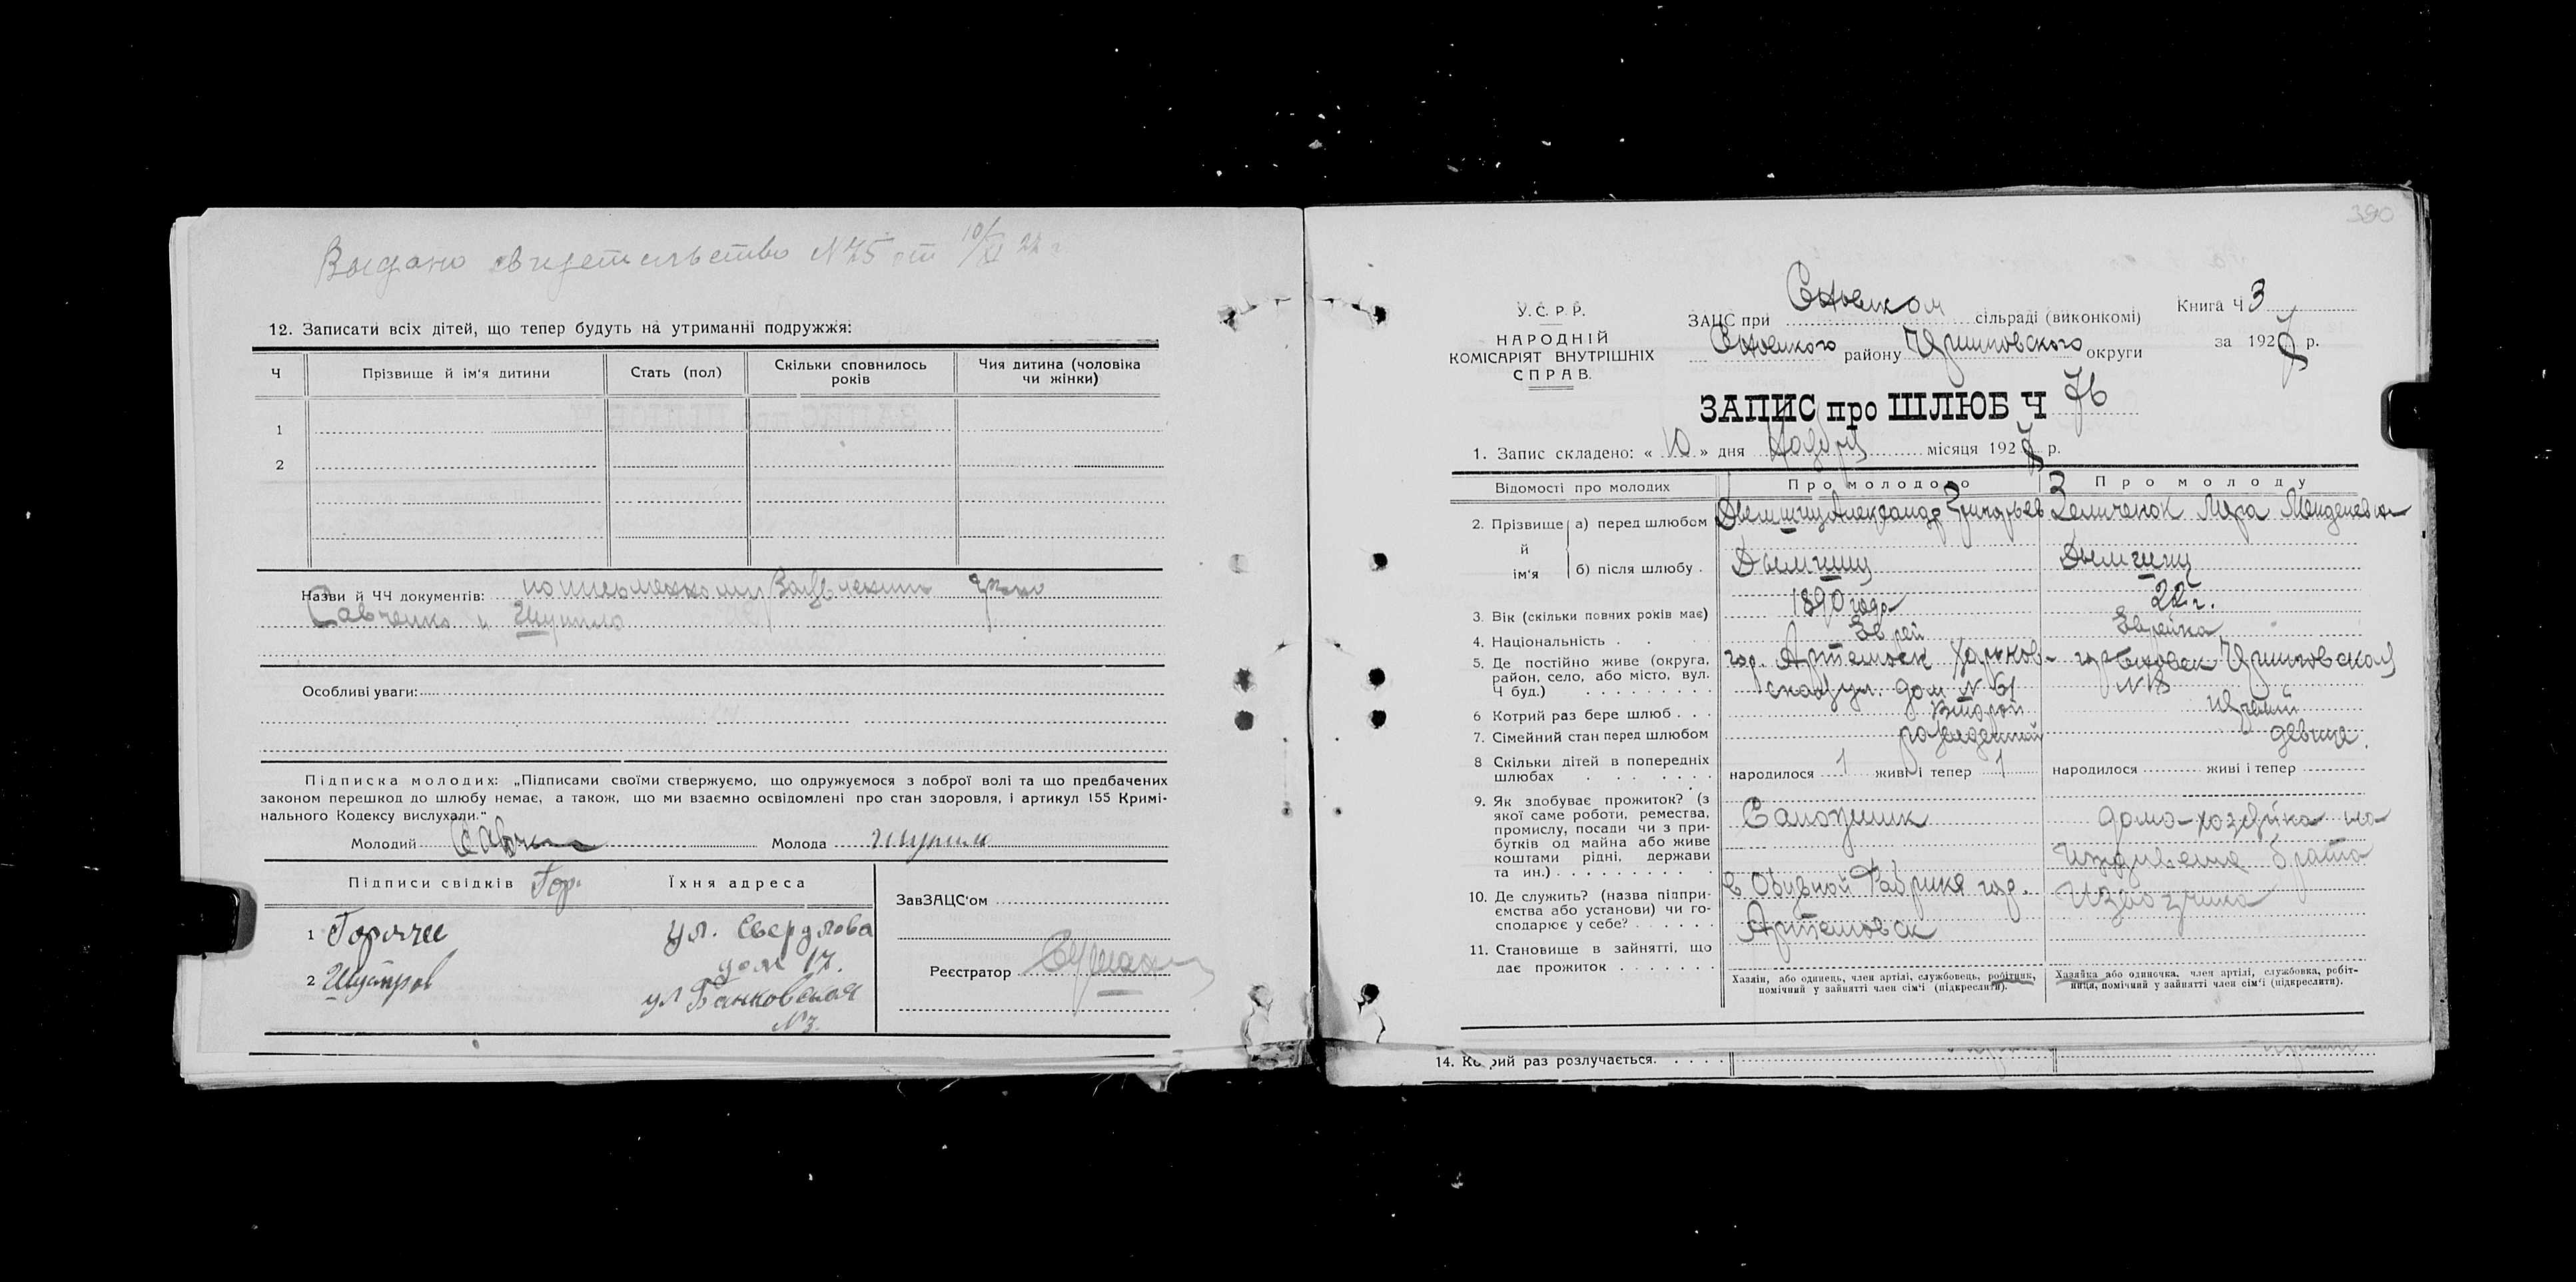 Выдано свидетельство N 75 от 10/XI 27 г
12. Записати всіх дітей, що тепер будуть на утриманні подружжя:
Ч
Прізвище й ім'я дитини
Стать (пол)
Скільки сповнилось років
Чия дитина (чоловіка чи жінки)
1
2
Назви й ЧЧ документів:
Савченко и Шупило
Особливі уваги:
Підписка молодих: „Підписами своїми стверджуємо, що одружуємося з доброї волі та що предбачених
законом перешкод до шлюбу немає, а також, що ми взаємно освідомлені про стан здоровля, і артикул 155 Кримі-
нального Кодексу вислухали."
Молодий Савчен Молода Шупило
Підписи свідків Гор. Їхня адреса
1 Горячев ул. Свердлова
дом 17.
2 Шустров ул Банковская
N 3.
ЗавЗАЦС'ом
Реєстратор
390
У.С.Р.Р.
НАРОДНІЙ
КОМІСАРІЯТ ВНУТРІШНІХ
СПРАВ.
ЗАЦС при Сновском сільраді (виконкомі)
Сновского району Черниговского округи
Книга Ч 3
за 1927 р.
ЗАПИС про ШЛЮБ Ч 76
1. Запис складено: « 10 » дня Ноября місяця 1927 р.
Відомості про молодих
Про молодого
Про молоду
2. Прізвище й ім'я
а) перед шлюбом Дымшиц Александр Григорьев Зеличенок Мера Менделевна
б) після шлюбу . Дымшиц Дымшиц
3. Вік (скільки повних років має) 1890 года 22 г.
4. Національність . Еврей Еврейка
5. Де постійно живе (округа, район, село, або місто, вул. Ч буд.)
гор. Артемовск Харьков-
ская ул. дом N 61
гор Сновск Черниговская
N 18
6 Котрий раз бере шлюб . . . Второй первый
7. Сімейний стан перед шлюбом разведенный девица.
8 Скільки дітей в попередніх шлюбах
народилося 1 живі і тепер 1
народилося живі і тепер
9. Як здобуває прожиток? (з якої саме роботи, ремества, промислу, посади чи з прибутків од майна або живе коштами рідні, держави та ин.)
Сапожник
домо-хозяйка на
иждивении брата
Извозчика
10. Де служить? (назва підприємства або установи) чи господарює у себе?
в Обувной Фабрике гор.
Артемовск
11. Становище в зайнятті, що дає прожиток
Хазяїн, або одинець, член артілі, службовець, робітник, помічний у зайнятті член сім'ї (підкреслити).
Хазяйка або одиночка, член артілі, службовка, робітниця, помічний у зайнятті член сім'ї (підкреслити).
14. Котрий раз розлучається.